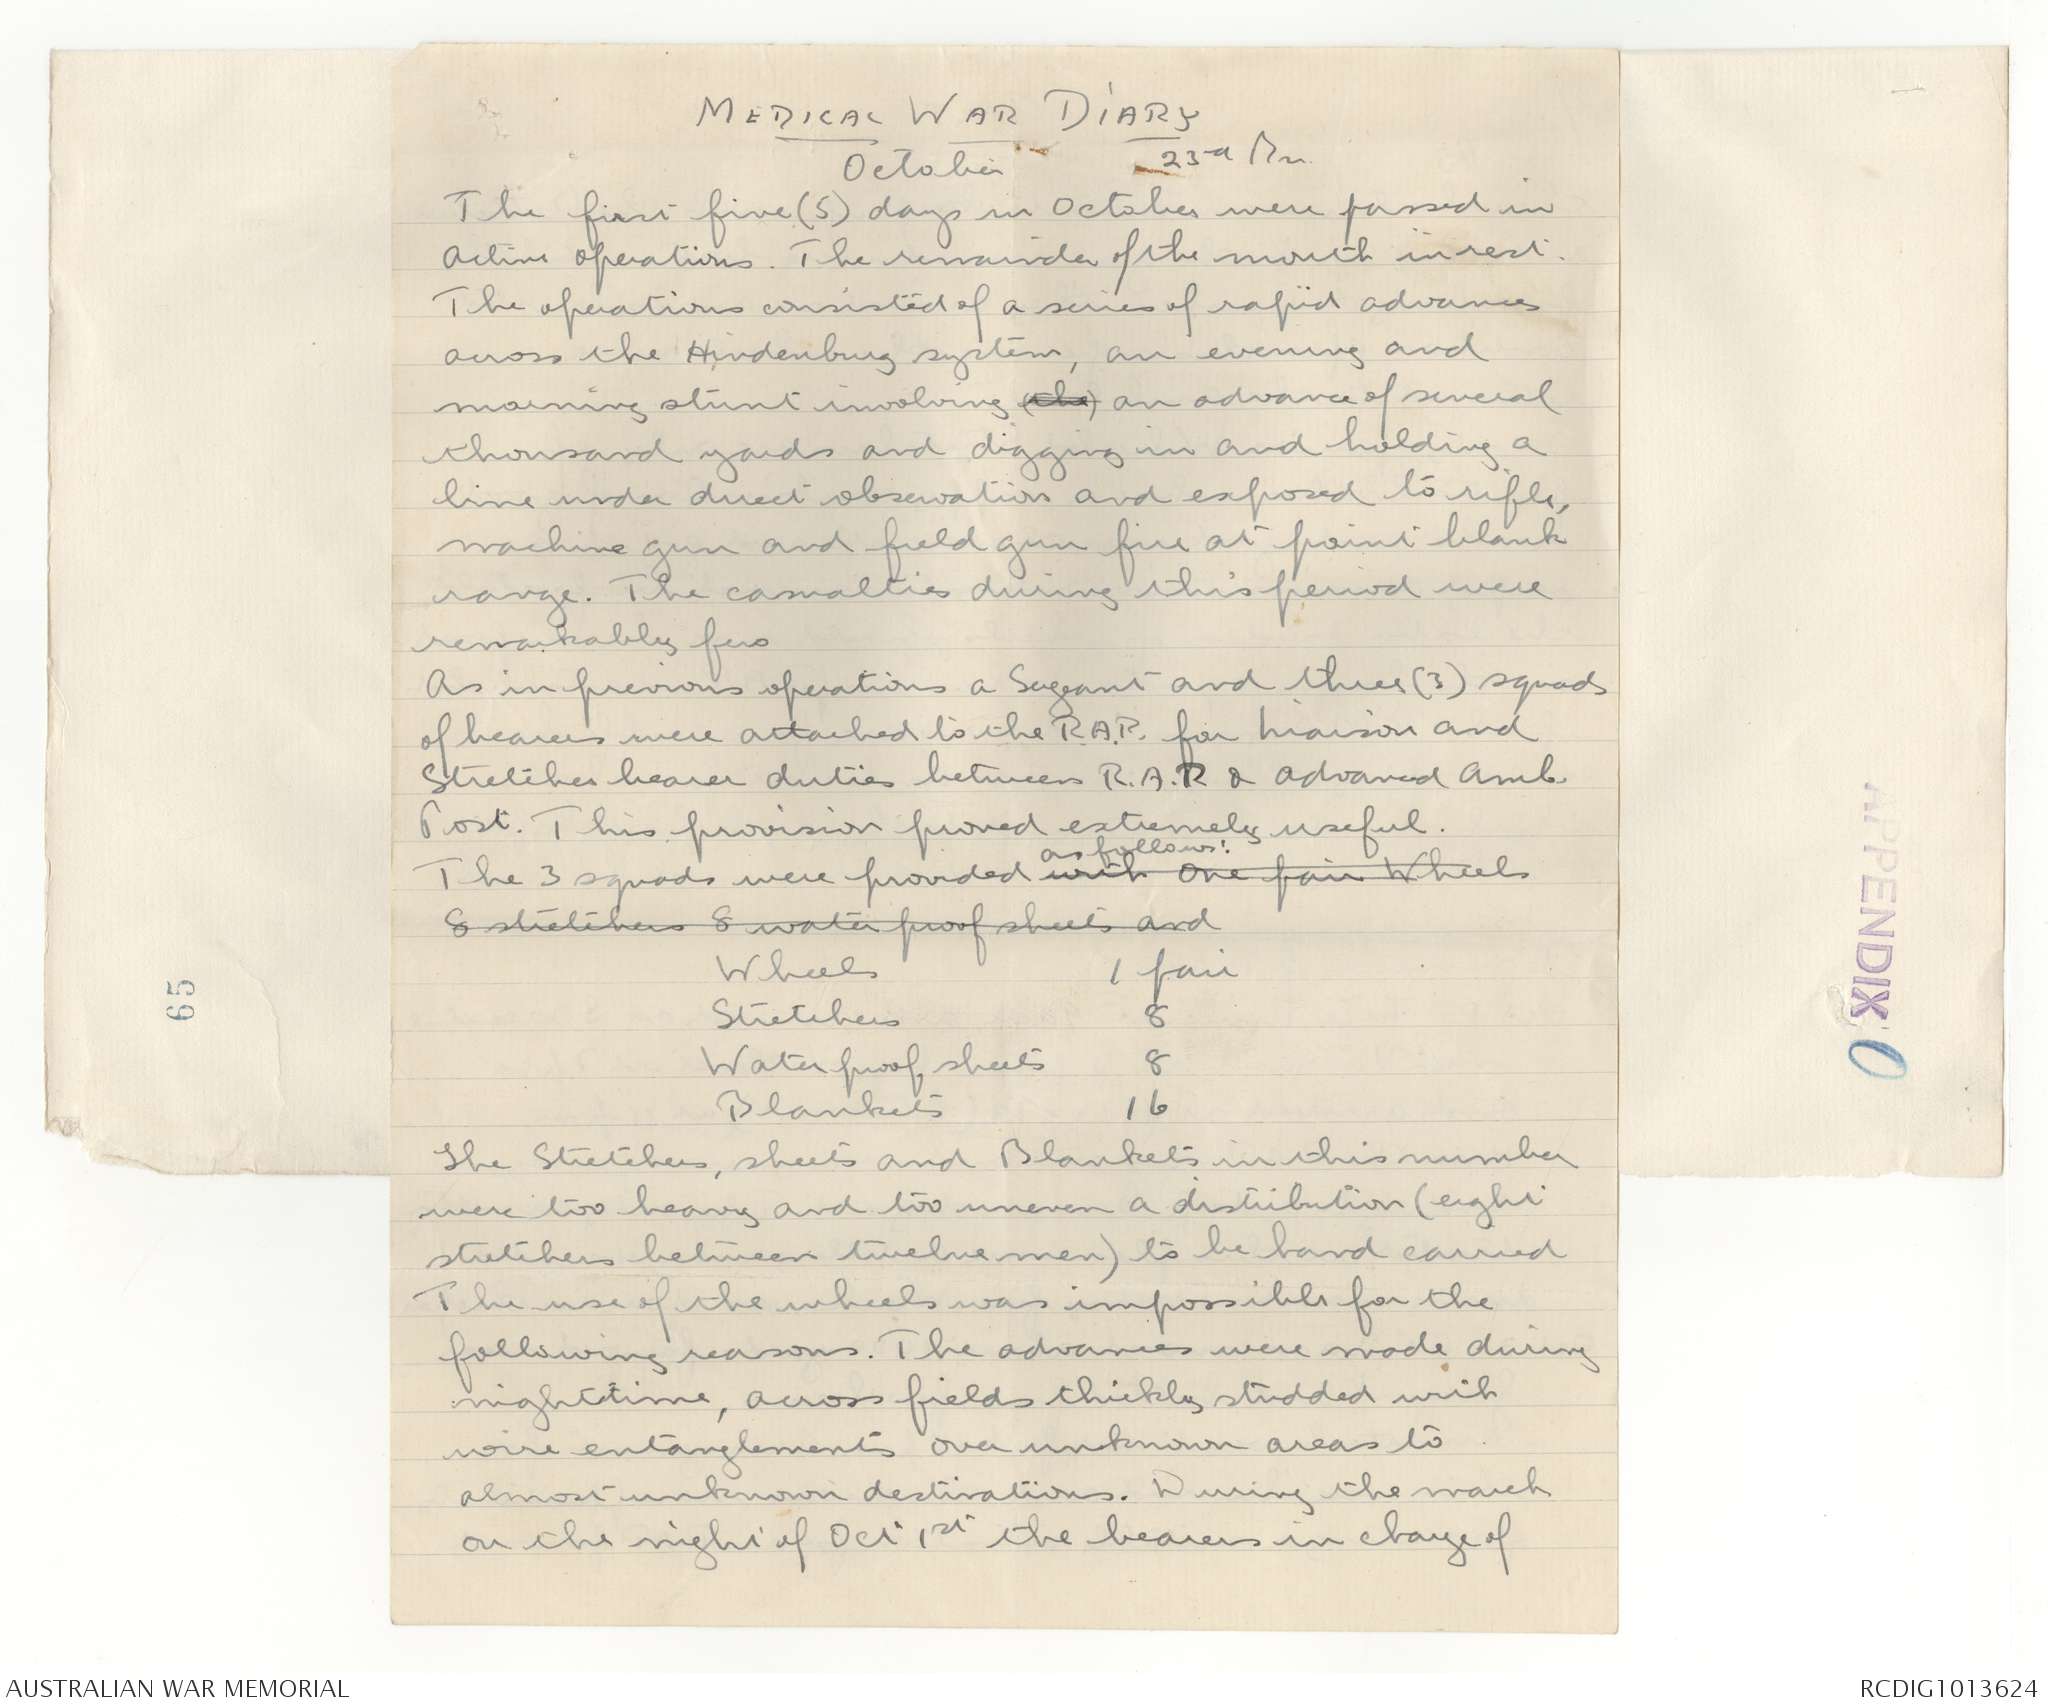 MEDICAL WAR DIARY
October 23rd Bn.
The first five (5) days in October were passed in
active operations. The remainder of the month in rest.
The operations consisted of a series of rapid advances
across the Hindenburg system, an evening and
morning stunt involving (the) an advance of several
thousand yards and digging in and holding a
line under direct observation and exposed to rifle,
machine gun and field gun fire at point blank
range. The casualties during this period were
remarkably few
As in previous operations a Sergeant and three (3) squads
of bearers were attached to the R.A.P. for liaison and
Stretcher bearer duties between R.A.P. & advanced Amb.
Post. This provision proved extremely useful.
as follows:
The 3 squads were provided with one pair Wheels
8 stretchers 8 water proof sheets and
Wheels 1 pair
Stretchers 8
Water proof sheets 8
Blankets 16
The Stretchers, sheets and Blankets in this number
were too heavy and too uneven a distribution (eight
stretchers between twelve men) to be hand carried
The use of the wheels was impossible for the
following reasons. The advances were made during
nighttime, across fields thickly studded with
wire entanglements over unknown areas to
almost unknown destinations. During the march
on the night of Oct 1st the bearers in charge of
65
APPENDIX O
AUSTRALIAN WAR MEMORIAL
RCDIG1013624